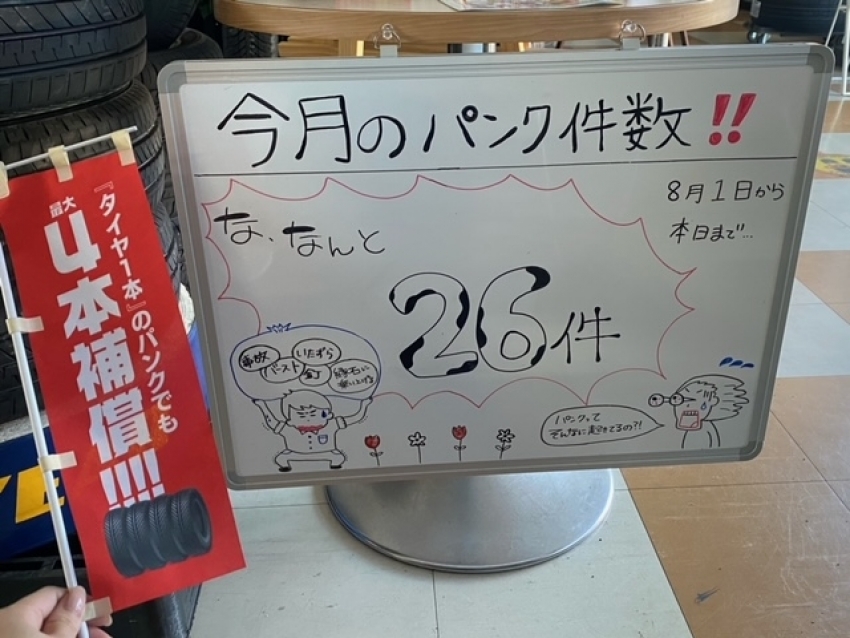 今月のパンク件数!!
8月1日から
本日まで…
な、なんと
26件
事故
いたずら
バースト
釘
縁石に
乗り上げる
パンクって
そんなに起きてるの?!
『タイヤ1本』のパンクでも
最大
4本補償!!!!